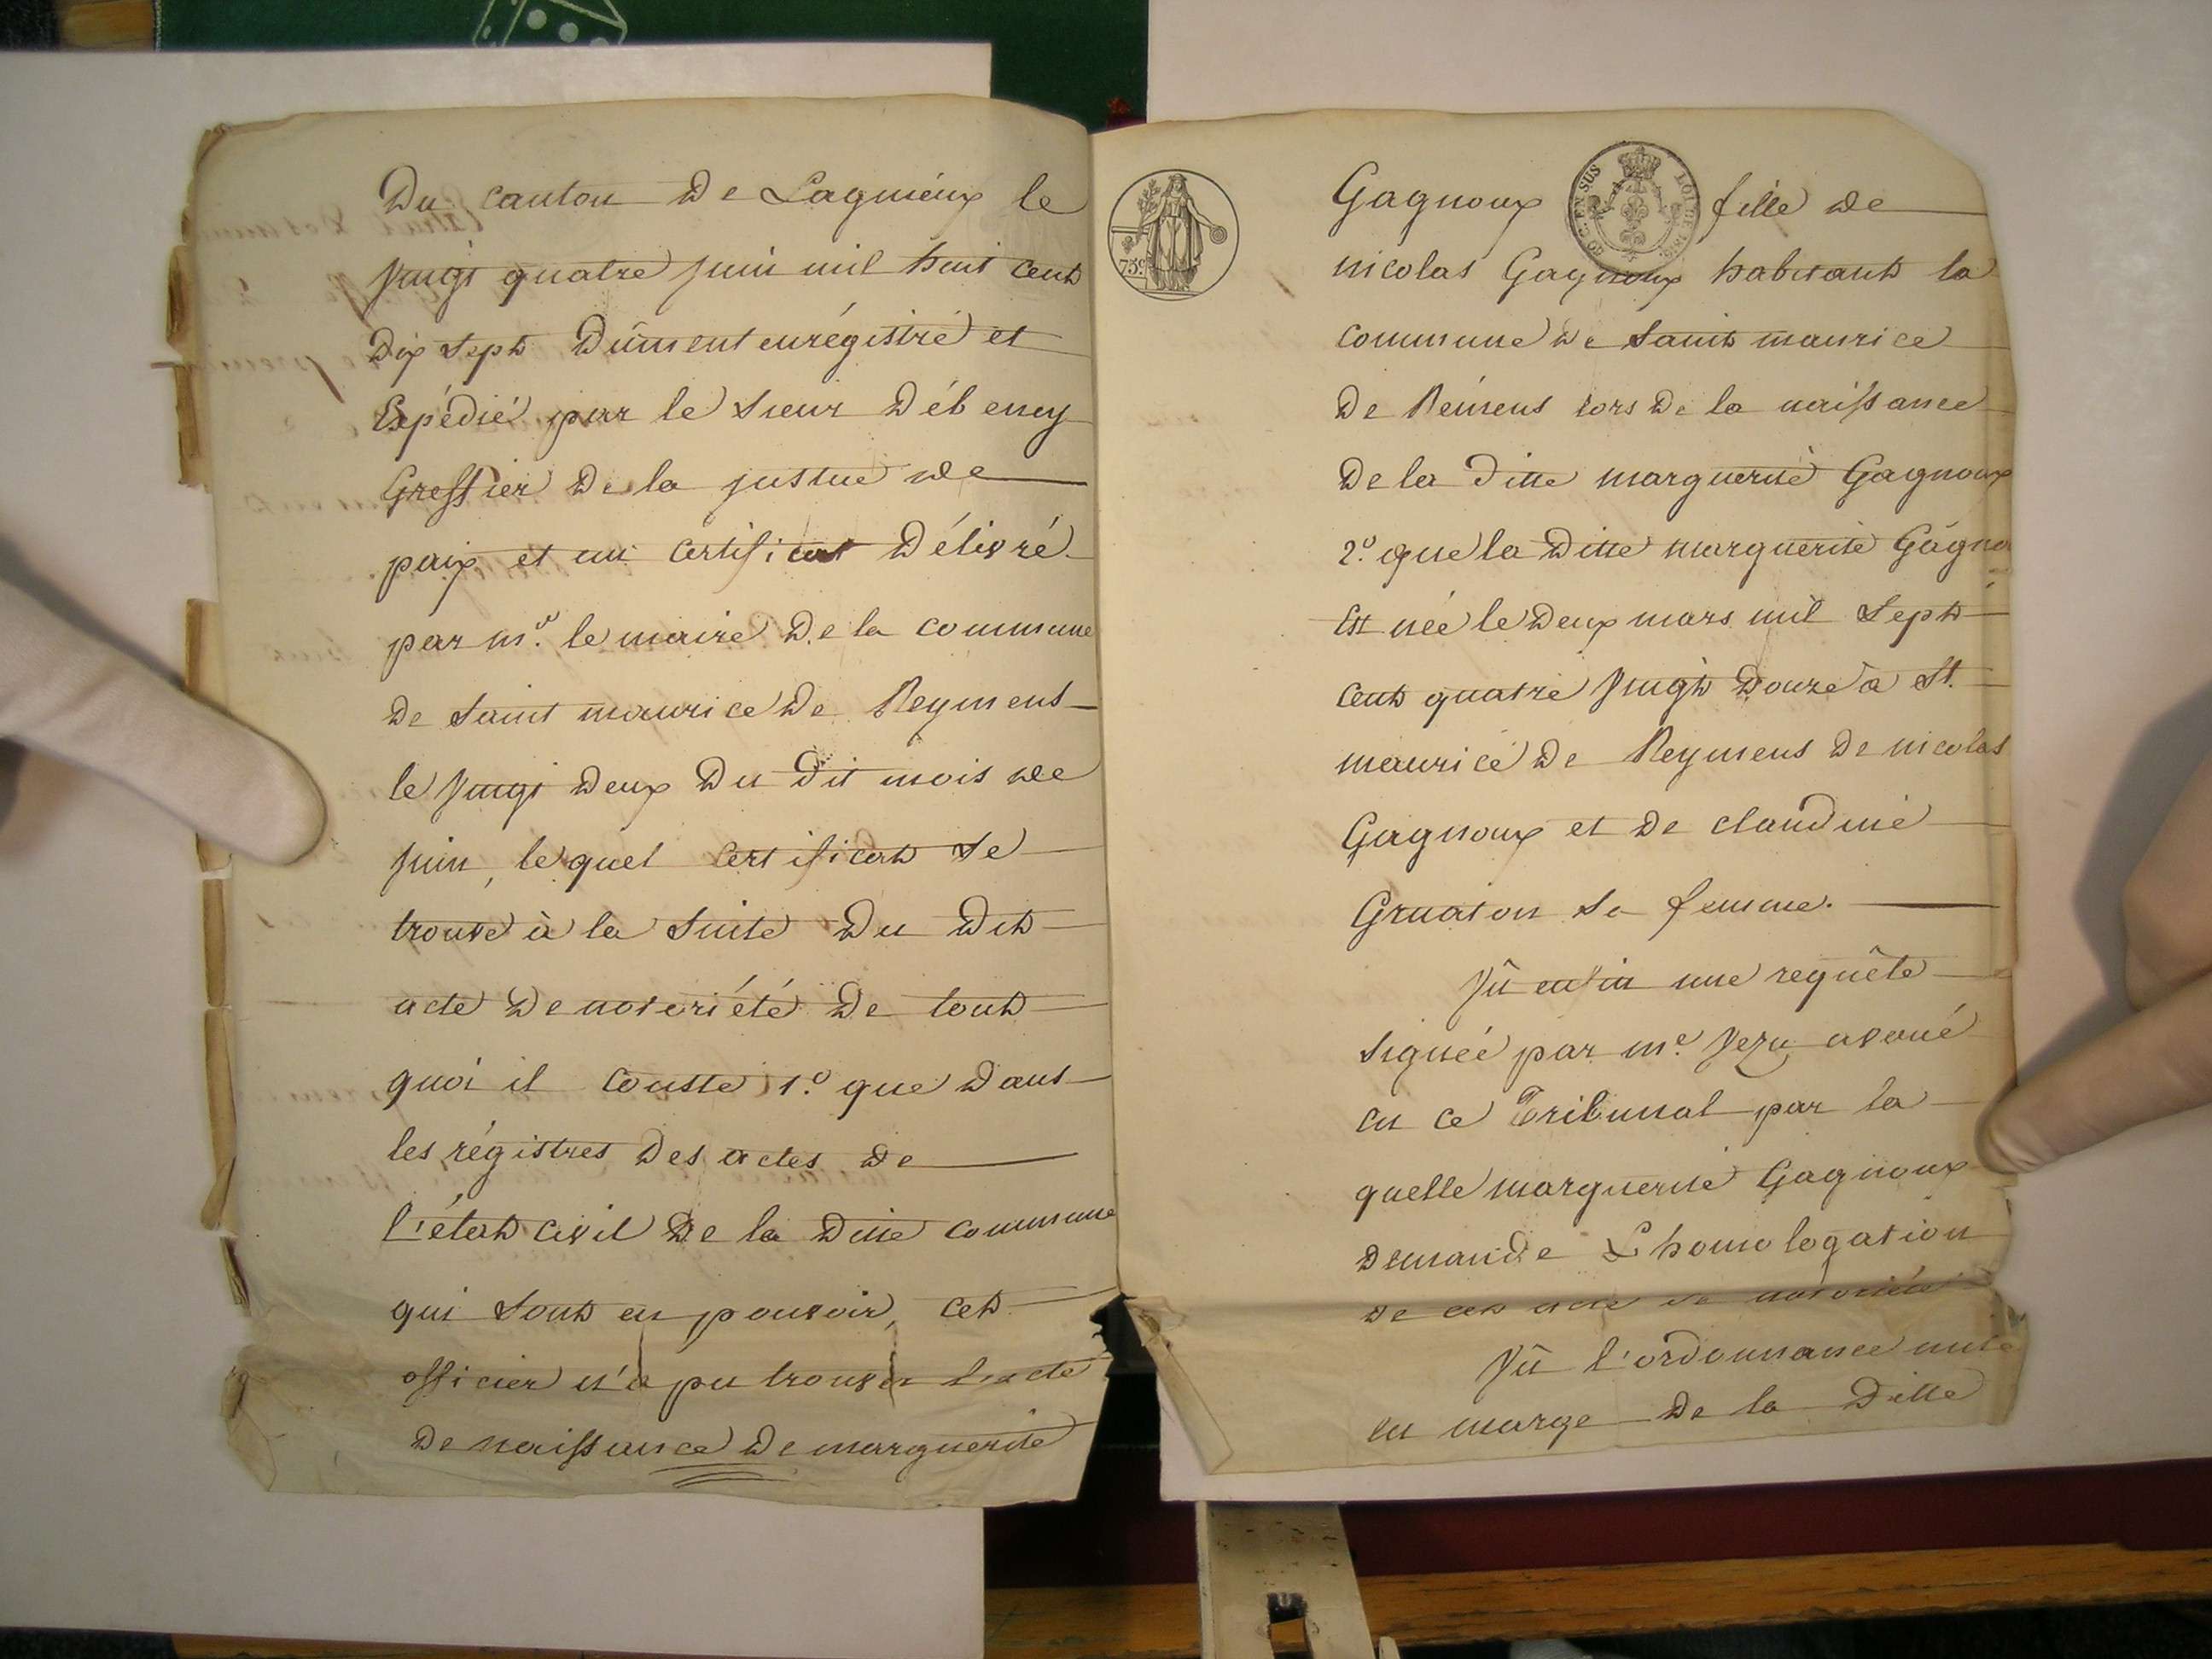 Du canton De Lagnieux le
vingt quatre juin mil huit cent
Dix sept Dûment enrégistré et
Expédié par le sieur Débeney
Greffier De la justice de
paix et un certificat Délivré
par mr. le maire De la commune
De saint maurice De Reymens
le vingt Deux Du Dit mois de
juin, lequel certificat se
trouve à la suite Du Dit
acte De notoriété De tout
quoi il conste 1.o que Dans
les régistres Des actes de
l'état civil De la Ditte commune
qui sont en pouvoir, cet
officier n'a pu trouver l'acte
De naissance De marguerite
75c
Gagnoux fille de
nicolas Gagnoux habitant la
commune De saint maurice
De Rémens lors De la naissance
De la Ditte marguerite Gagnoux
2.o que la Ditte marguerite Gagno
Est née le Deux mars mil sept
cent quatre vingt Douze à St.
maurice De Reymens De nicolas
Gagnoux et De claudine
Gruaton sa femme.
Vû enfin une requête
signée par me. Vezu avoué
en ce Tribunal par la
quelle marguerite Gagnoux
Demande L'homologation
De cet acte de notoriété
Vû l'ordonnance mise
en marge De la Ditte